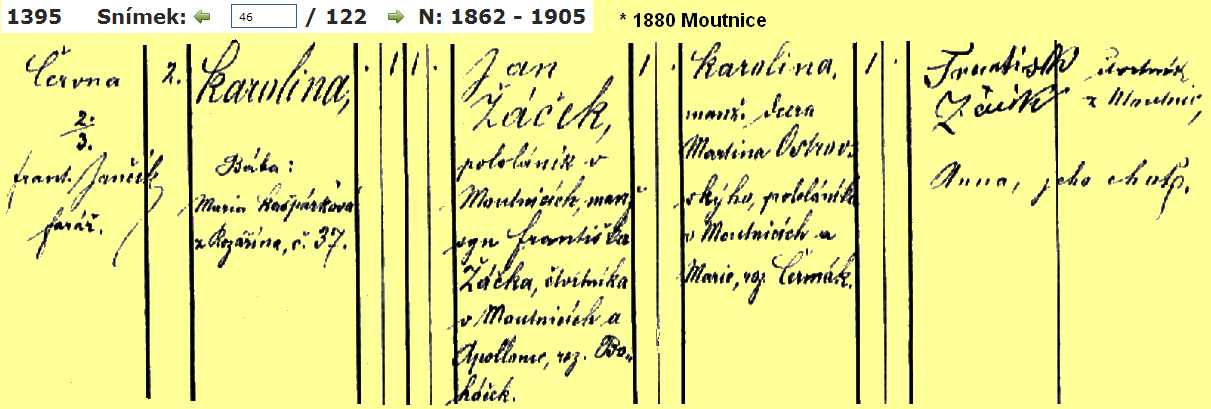 1395 Snímek: 46 / 122 N: 1862 - 1905 * 1880 Moutnice
Června
2.
3.
frant. Janček
farář.
2.
Karolina,
Bába:
Maria Kašpárková
z Rozařína, č. 37.
1 1.
Jan
Žáček,
pololáník v
Moutnicích, manž.
syn františka
Žáčka, čtvrtníka
v Moutnicích a
Apollonie, roz. Bo-
háček.
1.
Karolina,
manž. dcera
Martina Ostrov-
ského, pololáníka
v Moutnicích a
Marie, roz. Čermák.
1.
František čtvrtník
Žáček z Moutnic,
Anna, jeho choť.